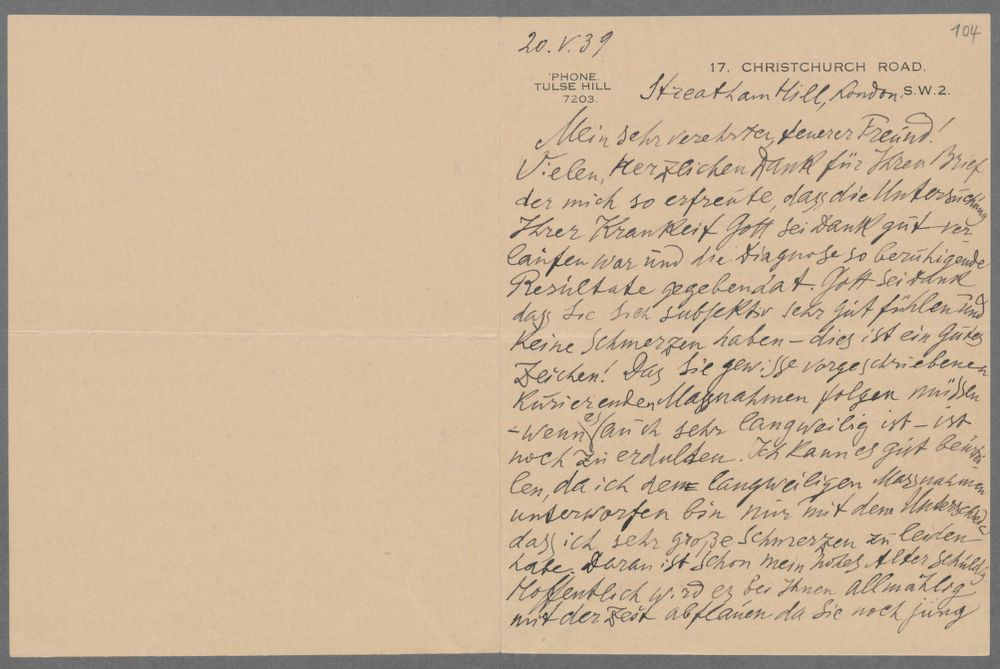 104
20. V. 39
17, CHRISTCHURCH ROAD,
'PHONE.
TULSE HILL
7203.
Streatham Hill, London. S.W.2.
Mein sehr verehrter, teuerer Freund!
Vielen, herzlichen Dank für Ihren Brief
der mich so erfreute, dass die Untersuchung
Ihrer Krankeit Gott sei Dank gut ver-
laufen war und die Diagnose so beruhigende
Resultate gegeben hat. Gott sei Dank
dass Sie sich subjektiv sehr gut fühlen und
keine Schmerzen haben – dies ist ein gutes
Zeichen! Das Sie gewisse vorgeschriebenen
kurierenden Massnahmen folgen müssen
– wenn es auch sehr langweilig ist – ist
noch zu erdulden. Ich kann es gut beurtei-
len, da ich dem langweiligen Massnahmen
unterworfen bin nur mit dem Unterschied
dass ich sehr große Schmerzen zu leiden
habe. Daran ist schon mein hohes Alter schuldig
Hoffentlich wird es bei Ihnen allmählig
mit der Zeit abflauen da Sie noch jung